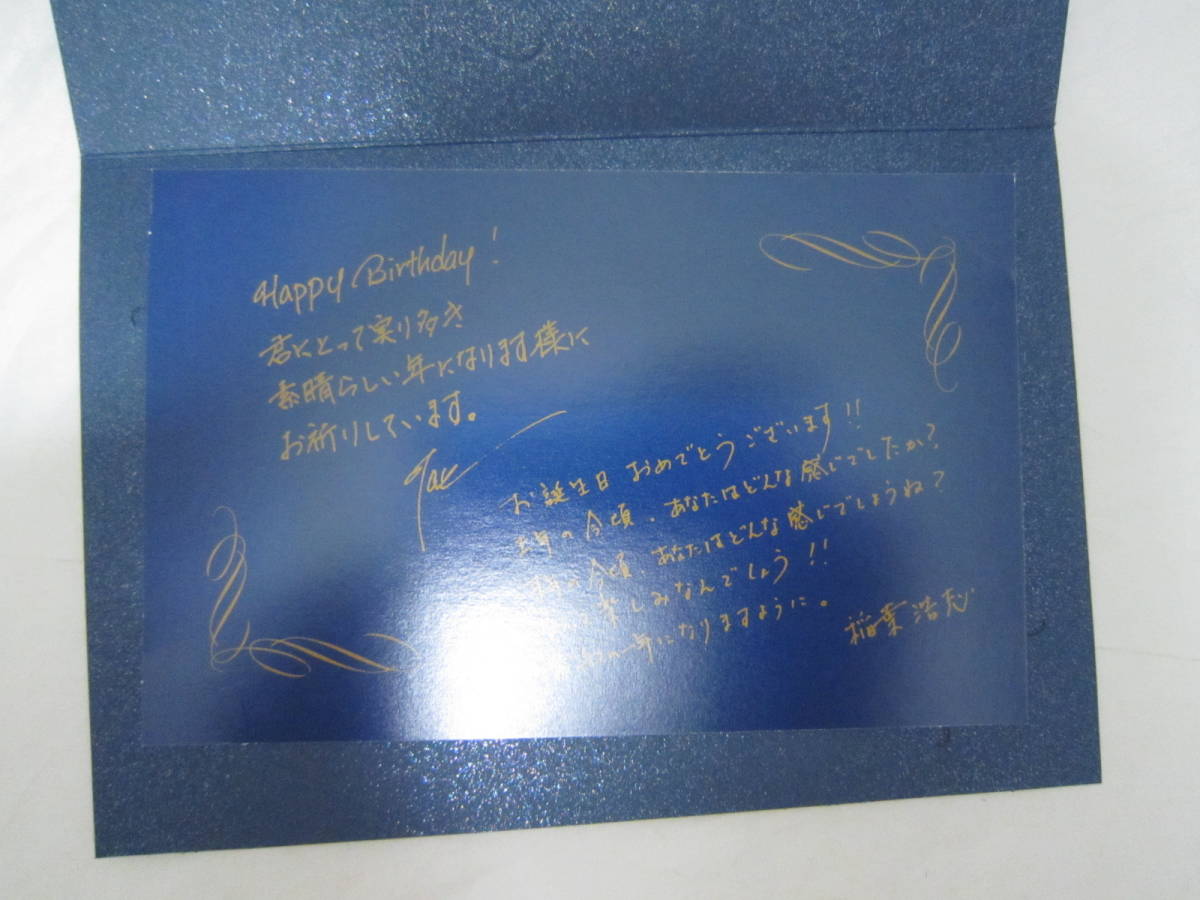 Happy Birthday!
君にとって実り多き
素晴らしい年になります様に
お祈りしています。
Tak
お誕生日 おめでとうございます!!
去年の今頃、あなたはどんな感じでしたか?
来年の今頃、あなたはどんな感じでしょうね?
楽しみなんでしょう!!
年になりますように。
稲葉浩志